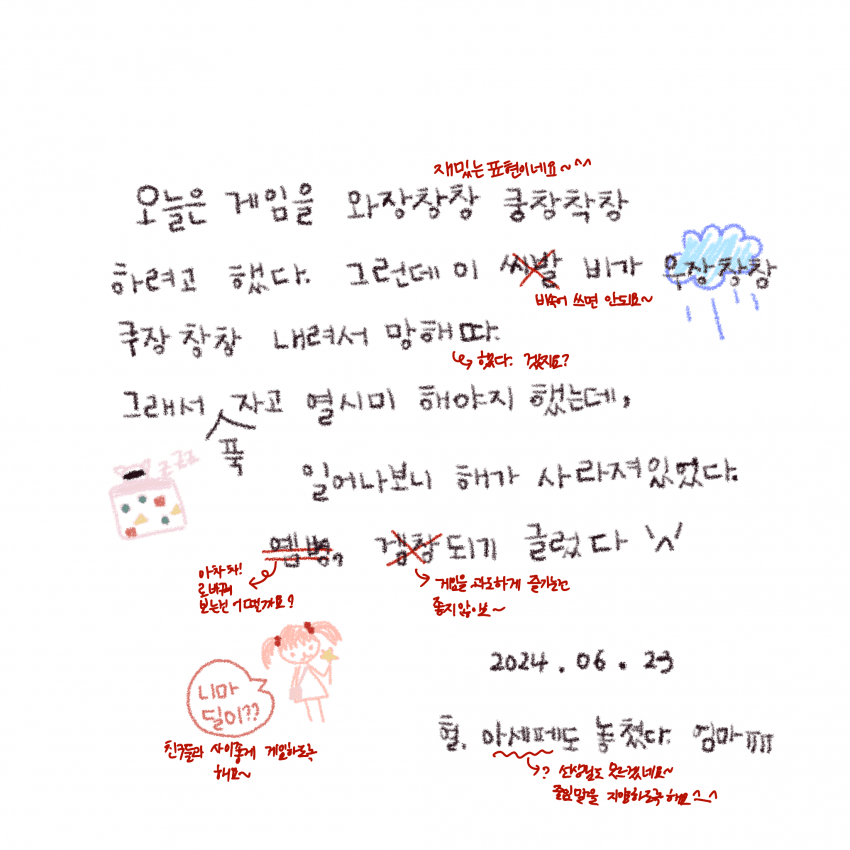 재밌는 표현이네요~^^
오늘은 게임을 와장창창 쿵창착창
하려고 했다. 그런데 이 씨발 비가 우장창창
비속어 쓰면 안되요~
쿠장창창 내려서 망해따.
했다. 겠지요?
그래서 자고 열시미 해야지 했는데,
푹
zzz
일어나보니 해가 사라져있었다.
옘병, 겜창되기 글렀다 'ㅅ'
아차차!
로 바꿔
보는건 어떤가요?
게임을 과도하게 즐기는건
좋지않아요~
니마
딜이??
친구들과 사이좋게 게임하도록
해요~
2024.06.23
헐, 아세페도 놓쳤다. 엄마ㅠㅠ
? 선생님도 모르겠네요~
줄임말을 지양하도록 해요^_^